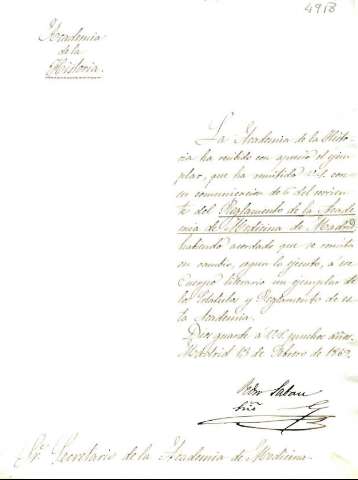 49B
Academia
de la
Historia.
La Academia de la Histo-
ria ha recibido con aprecio el ejem-
plar, que ha remitido V.S. con
su comunicacion de 6 del corrien-
te del Reglamento de la Acade-
mia de Medicina de Madrid
habiendo acordado que se remita
en cambio, segun lo ejecuto, á ese
Cuerpo literario un ejemplar de
los Estatutos y Reglamento de es-
ta Academia.
Dios guarde á V.S. muchos años.
Madrid 13 de Febrero de
Sabau
Sr. Secretario de la Academia de Medicina.